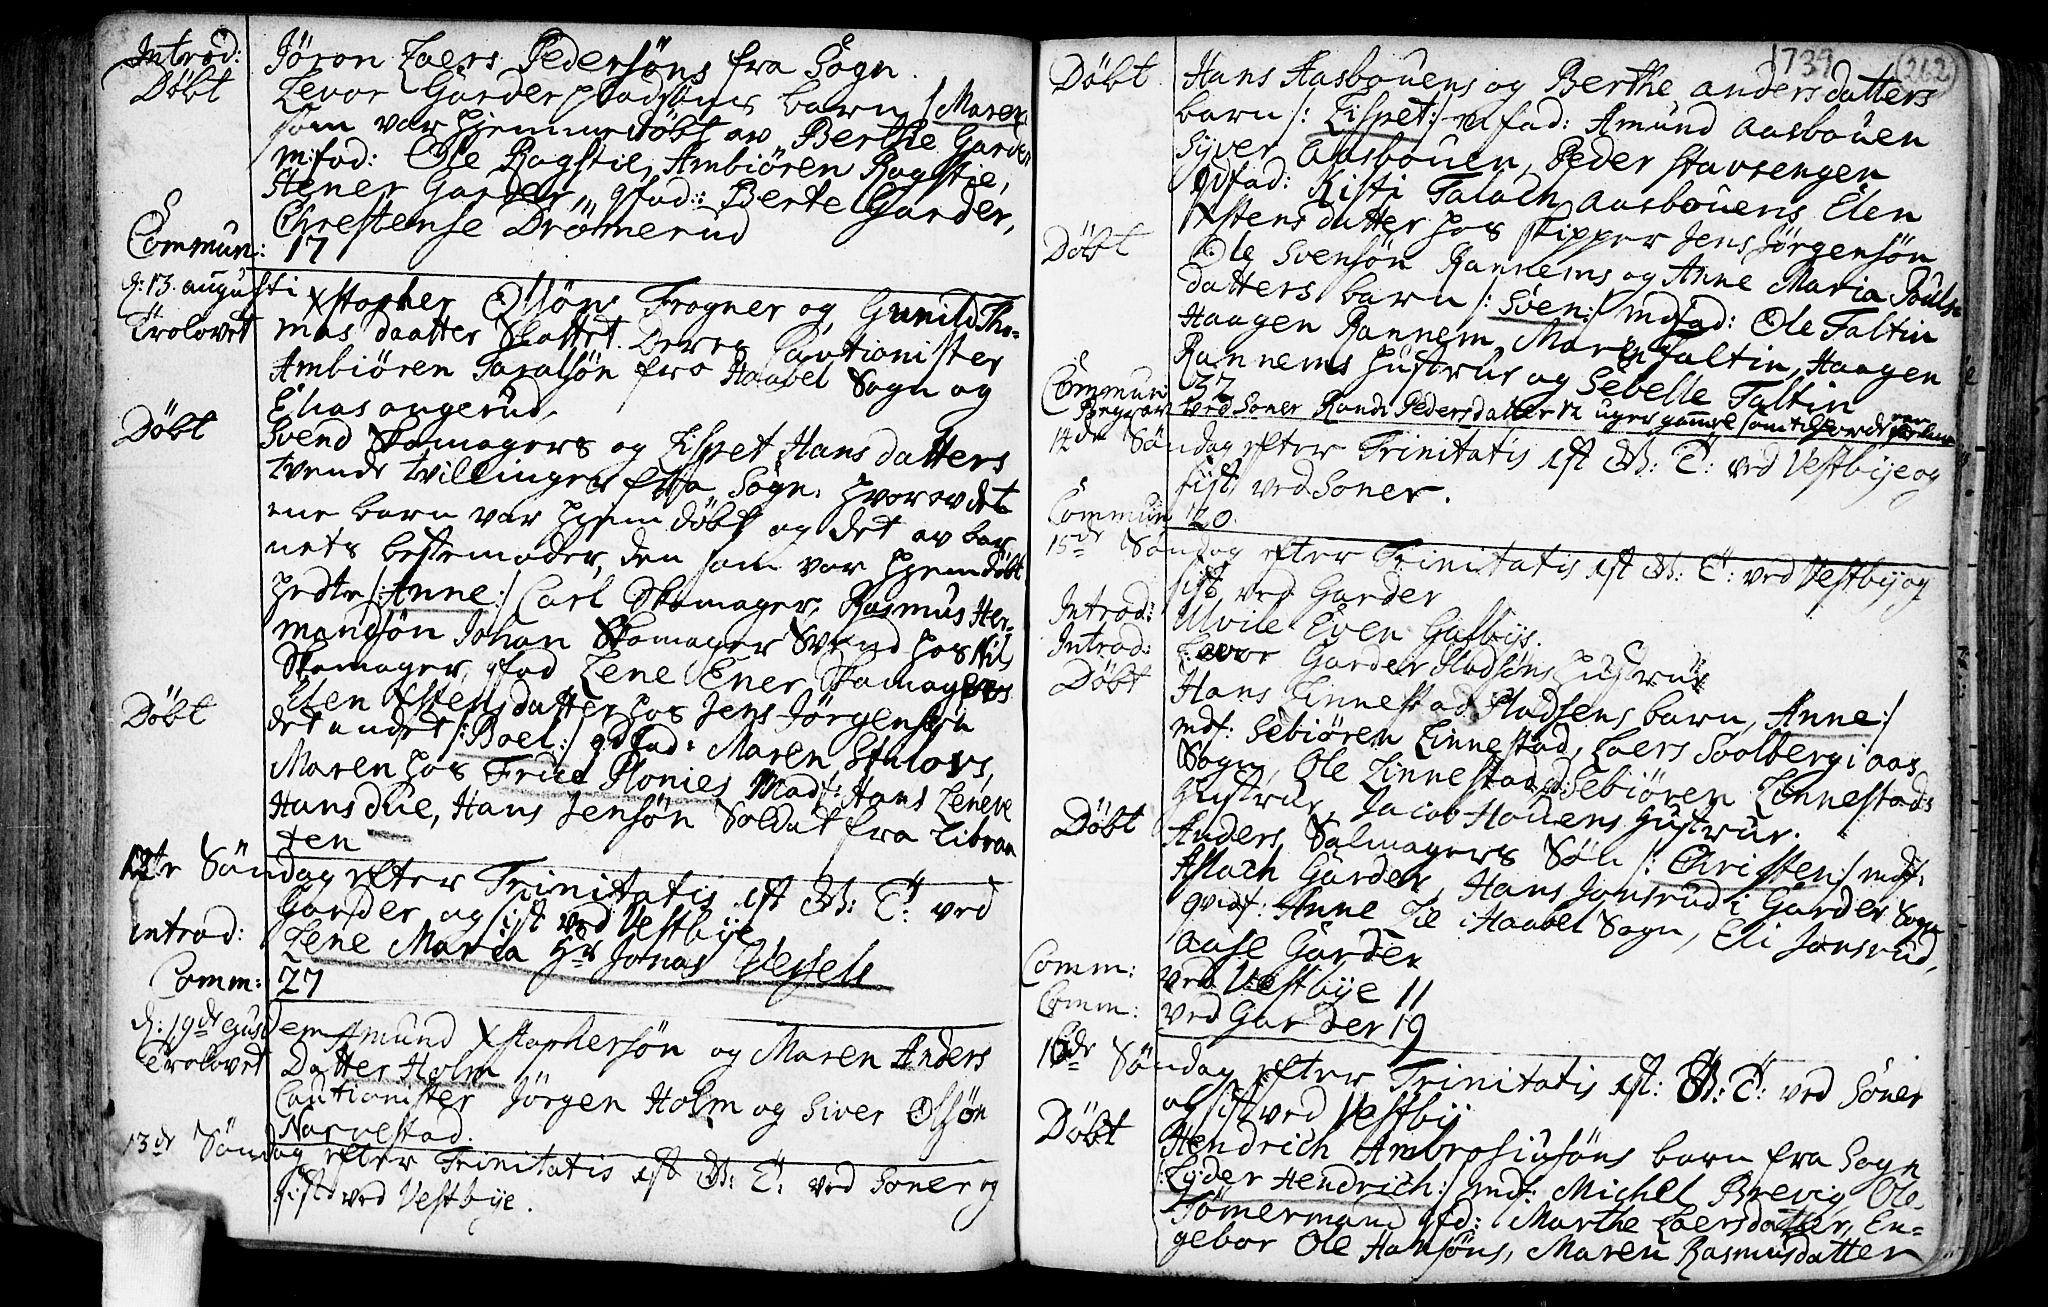 Introd: Jöron Laers Pedersöns fra Sogn.
Döbt Levor Garder pladsöns barn /: Maren
som var hjemmedöbt av Berthe Garder
m:fad: Ole Rogstie, Ambiören Rogstie,
Stener Garder, qfad: Berte Garder,
Chrestense Drömerud
Commun: 17
d: 13. augusti Xstopher Olsöns Frogner og Gunild Tho-
Trolovet mas daatter Skottet. Deres Cautionister
Ambiören Taralsön fra Haabel Sogn og
Elias angerud.
Döbt Svend Skomagers og Lispet Hansdatters
tvende tvillinger fra Sogn. hvorav det
ene barn var hjemdöbt og det av bar
nets bestemoder, den som var hjemdöbt
hedte /: Anne :/ Carl Skomager, Rasmus Her-
mansön Johan Skomager Svend hos Nils
Skomager, qfad Lene Ener Skomagers
Elen Xstensdatter hos Jens Jörgensön
Döbt det andet /: Boel :/ qdfad: Maren Stulovs,
Maren hos Frue Plonies Madf: Hans Leneve
Hans due, Hans Jensön Soldat fra Libraa
ten
12te Söndag efter Trinitatis est M: T: ved
Garder og sist ved Vestbye
introd: Lene Maria Hr Jonas Vessels
Comm: 27
d: 19de ejusdem Amund Xstophersön og Maren Anders
Trolovet Datter Holm
Cautionister Jörgen Holm og Siver Olsön
Narvestad.
13de Söndag efter Trinitatis est M: T: ved Soner og
sist ved Vestbye.
1739 (262)
Döbt Hans Aasbouens og Berthe andersdatters
barn /: Lispet :/ m fad: Amund aasbouen
Syver aasbouen, Peder Stavsengen
qdfad: Kisti Falach aasbouens Elen
Xstensdatter hos skipper Jens Jörgensön
Döbt Ole Svensön Rannems og Anne Maria Pouls-
datters barn /: Sven :/ mdfad: Ole Taltin
Haagen Rannem, Maren Taltin, Haagen
Rannems hustrue og Sebelle Taltin
Commun 32
Begrav: ved Soner Rande Pedersdatter 12 uger gammel
14de Söndag efter Trinitatis est M: T: ved Vestbye og
sist ved Soner.
Commun 20.
15de Söndag efter Trinitatis est M: T: ved Vestby og
sist ved Garder
Introd: Alvile Even Galbys.
Introd: Levor Garder Pladsens hustrue
Döbt Hans Linnestad Pladsens barn, Anne :/
mdf: Sebiören Linnestad, Laers Soolberg i aas
Sogn, Ole Linnestad, qd: Sebiören Linnestads
Hustrue, Jacob Houens Hustrue.
Döbt Anders Salmagers Sön /: Christen :/ mdf:
Aslach Garder, Hans Jonsrud i Garder Sogn
qvidf: Anne Lie i Haabel Sogn, Eli Jonsrud,
Aase Garder
Comm: ved Vestbye 11
Comm: ved Garder 19
16de Söndag efter Trinitatis est: M: T: ved Soner
og sist ved Vestby
Döbt Hendrich Ambrosiusöns barn fra Sogn
/: Lyder Hendrich :/ mdf: Michel Brevig, Ole
Tömermand qfd: Marthe Laersdatter, En-
gebor Ole Hansöns, Maren Rasmusdatter